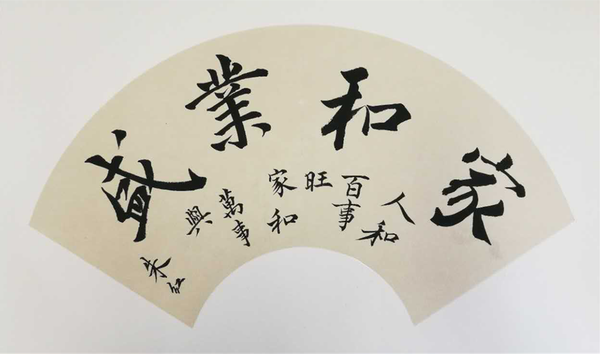 家和業盛
人和
百事
旺
家和
萬事
興
朱红